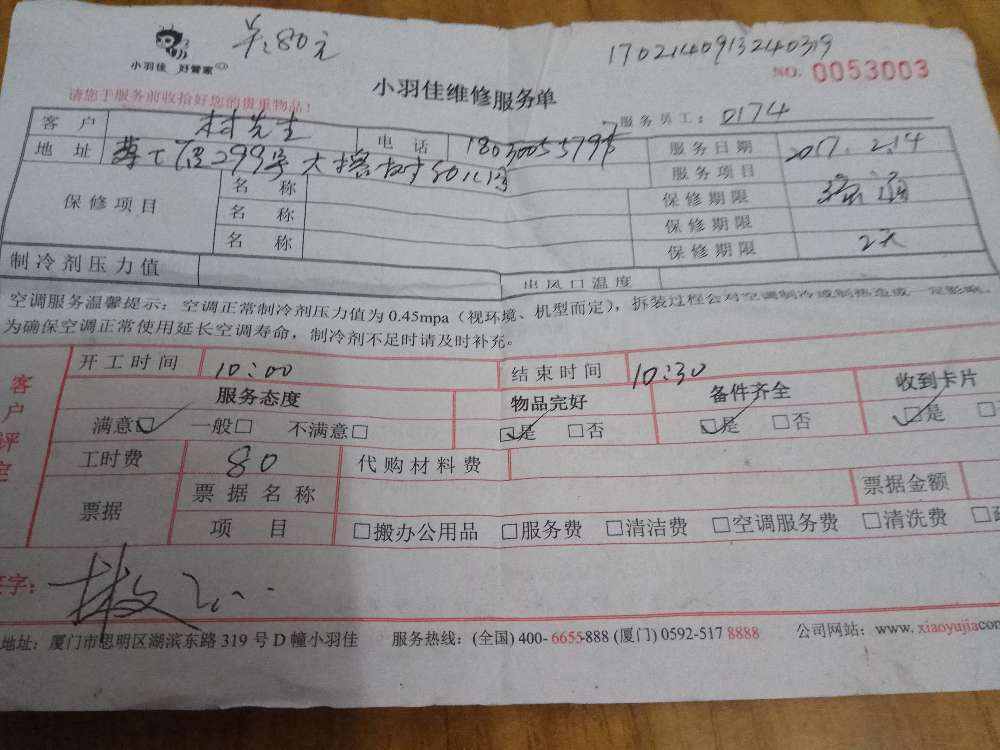 羊:80元
1702140913240319
小羽佳 好管家
NO. 0053003
小羽佳维修服务单
请您于服务前收拾好您的贵重物品!
服务员工: 0174
客户 村先生 电话
服务日期 2017.2.14
地址 299号大
服务项目 疏通
保修项目 名称 保修期限
名称 保修期限
名称 保修期限 2天
制冷剂压力值 出风口温度
空调服务温馨提示: 空调正常制冷剂压力值为 0.45mpa (视环境、机型而定), 拆装过程会对空调制冷或制热造成一定影响。
为确保空调正常使用延长空调寿命, 制冷剂不足时请及时补充。
客户评定
开工时间 10:00 结束时间 10:30
服务态度 物品完好 备件齐全 收到卡片
满意☑ 一般□ 不满意□ ☑是 □否 ☑是 □否 ☑是 □
工时费 80 代购材料费
票据 票据名称 票据金额
项目 □搬办公用品 □服务费 □清洁费 □空调服务费 □清洗费 □
签字:
地址: 厦门市思明区湖滨东路 319 号 D 幢小羽佳 服务热线: (全国) 400-6655-888 (厦门) 0592-517 8888 公司网站: www.xiaoyujia.com